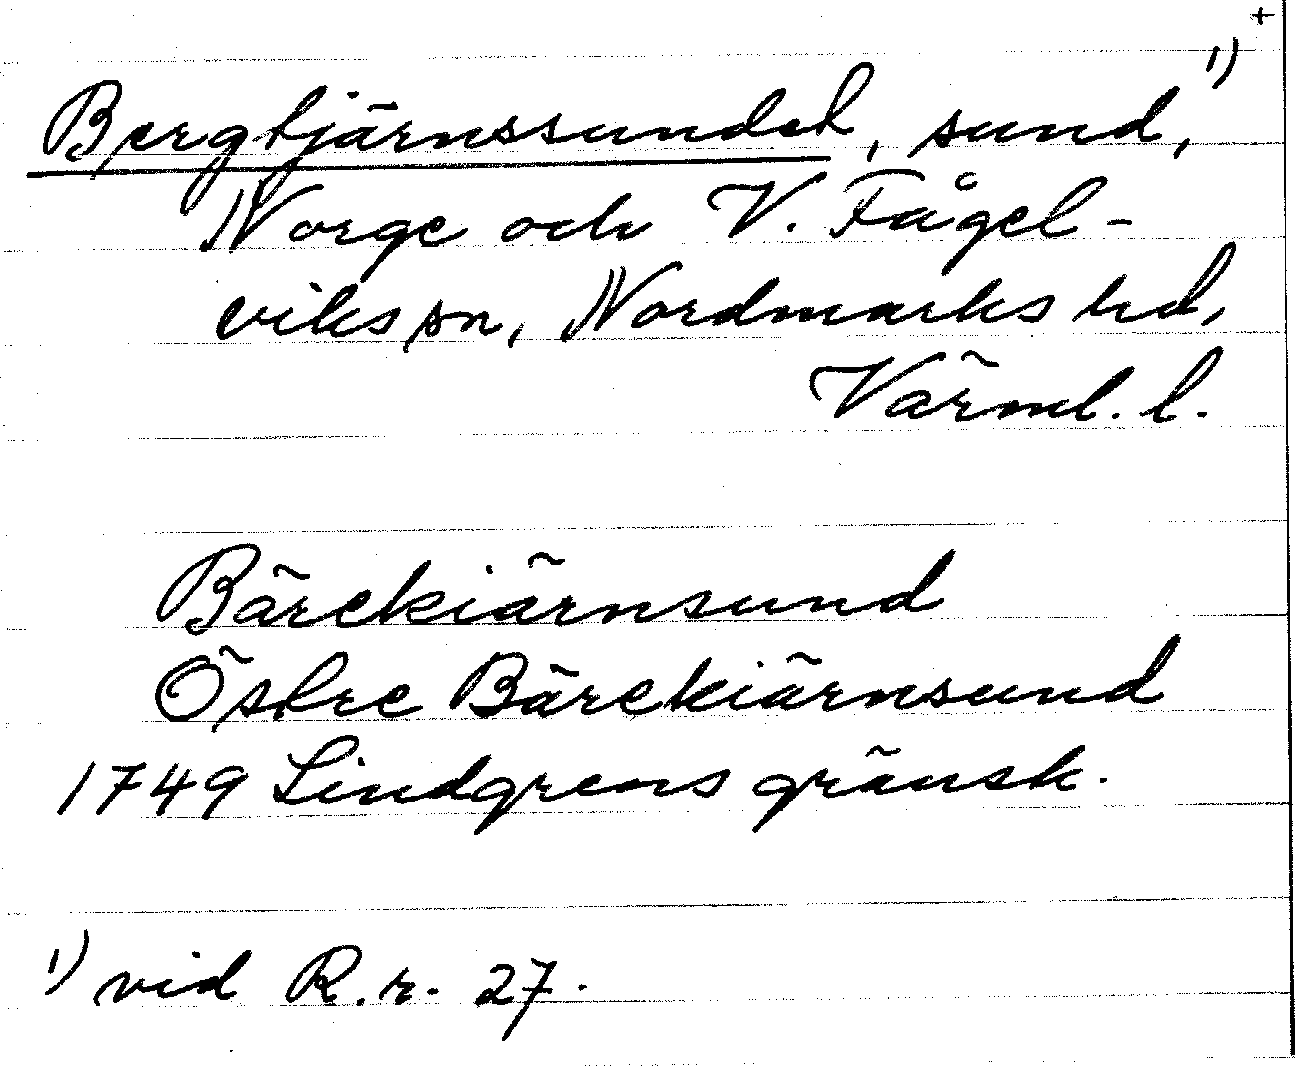 +
Bergtjärnssundet, sund, 1)
Norge och V. Fågel-
viks sn, Nordmarks hd,
Värml. l.
Bärckiärnsund
Östre Bärckiärnsund
1749 Lindgrens gränsk.
1) vid R.r. 27.